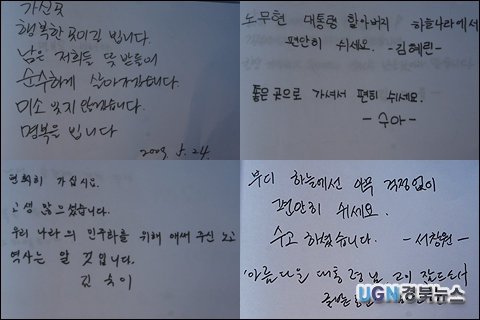 가신곳
행복한 곳이길 빕니다.
남은 저희는 덕 받들어
순수하게 살아가겠습니다.
미소 잊지 않겠습니다.
명복을 빕니다
2009. 5. 24.
노무현 대통령 할아버지 하늘나라에서
편안히 쉬세요. -김혜린-
좋은 곳으로 가셔서 편히 쉬세요.
- 수아 -
편희히 가십시요.
고생 많으셨습니다.
우리 나라의 민주화를 위해 애써 주신 노고
역사는 알 것입니다.
김 숙이
부디 하늘에선 아무 걱정없이
편안히 쉬세요.
수고 하셨습니다. -서창원-
아름다운 대통령님 고이 잠드소서
UGN경북뉴스